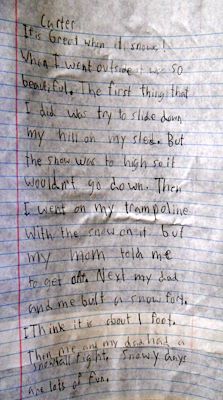 Carter
It is Great when it snows!
When I went outside it was so
beautiful. The first thing that
I did was try to slide down
my hill on my sled. But
the snow was to high so it
wouldn't go down. Then
I went on my trampoline
with the snow on it but
my mom told me
to get off. Next my dad
and me built a snow fort.
I Think it is about 1 foot.
Then me and my dad had a
snowball fight. Snowy days
are lots of fun.